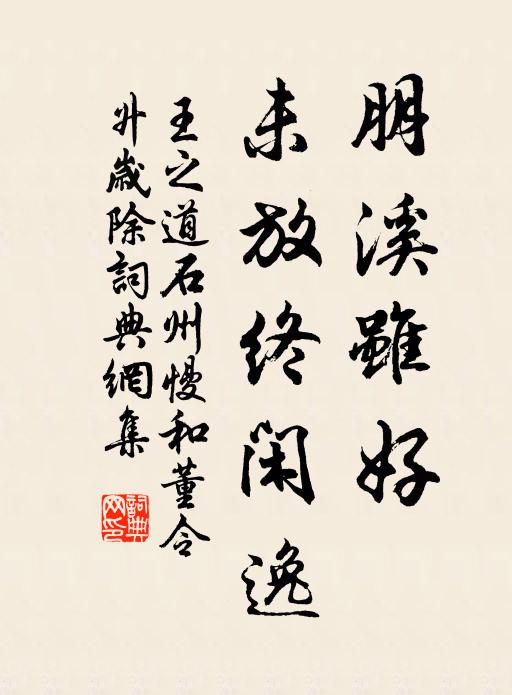 朋溪雖好
未放終閑逸
王之道石州慢和董令
升歲除詞典網集
詞典網印